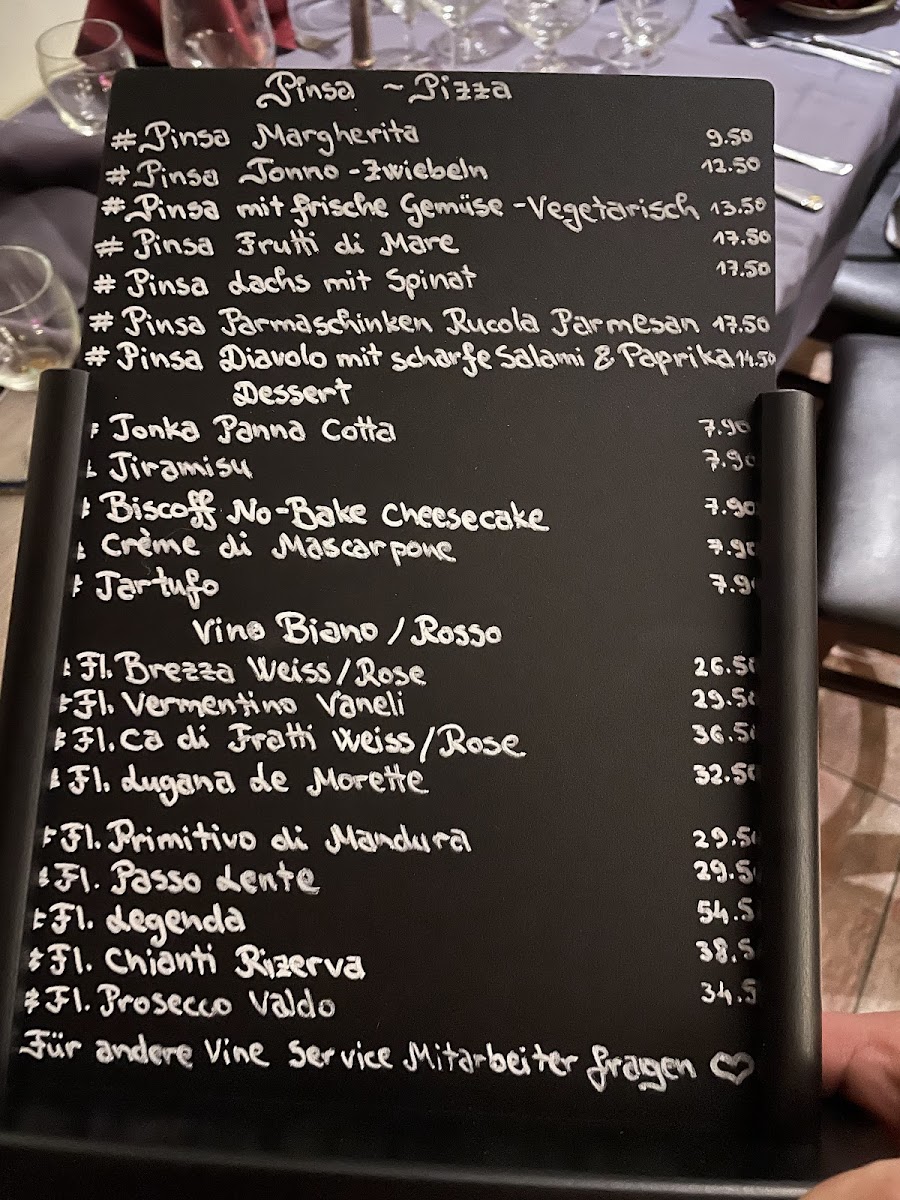 Pinsa ~ Pizza
# Pinsa Margherita 9.50
# Pinsa Tonno - Zwiebeln 12.50
# Pinsa mit frische Gemüse - Vegetarisch 13.50
# Pinsa Frutti di Mare 17.50
# Pinsa Lachs mit Spinat 17.50
# Pinsa Parmaschinken Rucola Parmesan 17.50
# Pinsa Diavolo mit scharfe Salami & Paprika 14.50
Dessert
# Tonka Panna Cotta 7.90
# Tiramisu 7.90
# Biscoff No-Bake Cheesecake 7.90
# Crème di Mascarpone 7.90
# Tartufo 7.9
Vino Biano / Rosso
# Fl. Brezza Weiss / Rose 26.50
# Fl. Vermentino Vaneli 29.50
# Fl. Ca di Fratti Weiss / Rose 36.50
# Fl. Lugana de Morette 32.50
# Fl. Primitivo di Mandura 29.50
# Fl. Passo Lente 29.5
# Fl. Legenda 54.5
# Fl. Chianti Rizerva 38.5
# Fl. Prosecco Valdo 34.5
Für andere Vine Service Mitarbeiter fragen ♡